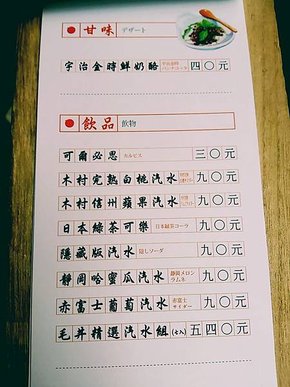 甘味 デザート
宇治金時鮮奶酪 四〇元
飲品 飲物
可爾必思 カルピス 三〇元
木村完熟白桃汽水 九〇元
木村信州蘋果汽水 九〇元
日本綠茶可樂 日本緑茶コーラ 九〇元
隱藏版汽水 隠しソーダ 九〇元
靜岡哈蜜瓜汽水 静岡メロンラムネ 九〇元
赤富士葡萄汽水 赤富士サイダー 九〇元
毛井精選汽水組(七入) 五四〇元